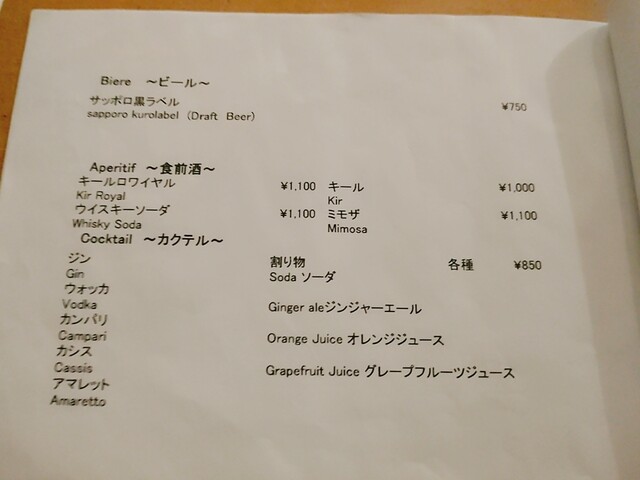 Biere ～ビール～
サッポロ黒ラベル ¥750
sapporo kurolabel (Draft Beer)
Aperitif ～食前酒～
キールロワイヤル ¥1,100 キール ¥1,000
Kir Royal Kir
ウイスキーソーダ ¥1,100 ミモザ ¥1,100
Whisky Soda Mimosa
Cocktail ～カクテル～
ジン 割り物 各種 ¥850
Gin Soda ソーダ
ウォッカ
Vodka Ginger aleジンジャーエール
カンパリ
Campari Orange Juice オレンジジュース
カシス
Cassis Grapefruit Juice グレープフルーツジュース
アマレット
Amaretto